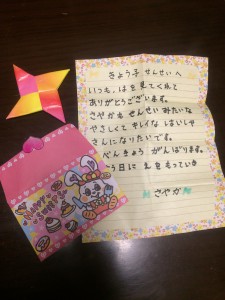 きょう子 せんせい へ
いつも、はを見てくれて
ありがとうございます。
さやかも せんせい みたいな
やさしくて キレイな はいしゃ
さんに なりたいです。
べんきょう がんばります。
う日に えをもっていき
さやか